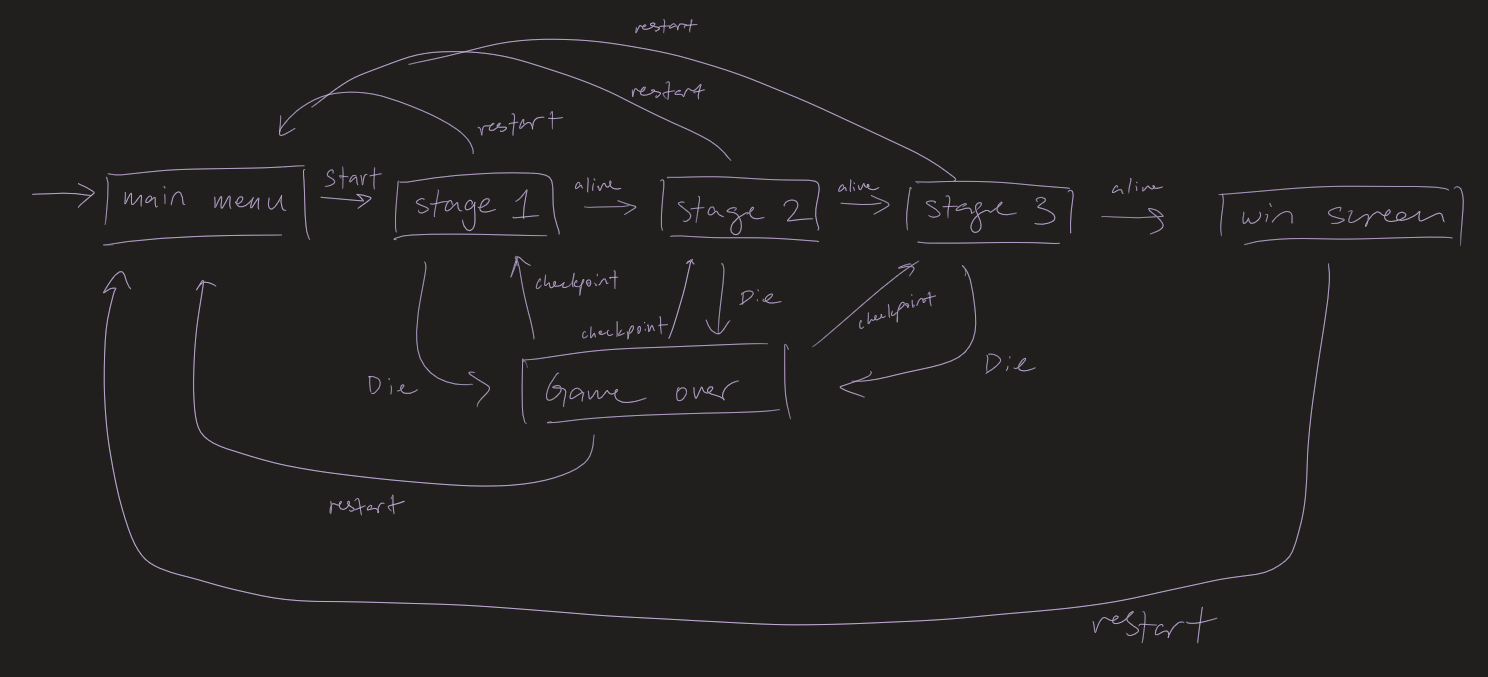 restart
restart
restart
main menu
start
stage 1
alive
stage 2
alive
stage 3
alive
win screen
checkpoint
Die
checkpoint
checkpoint
Die
Game over
Die
restart
restart